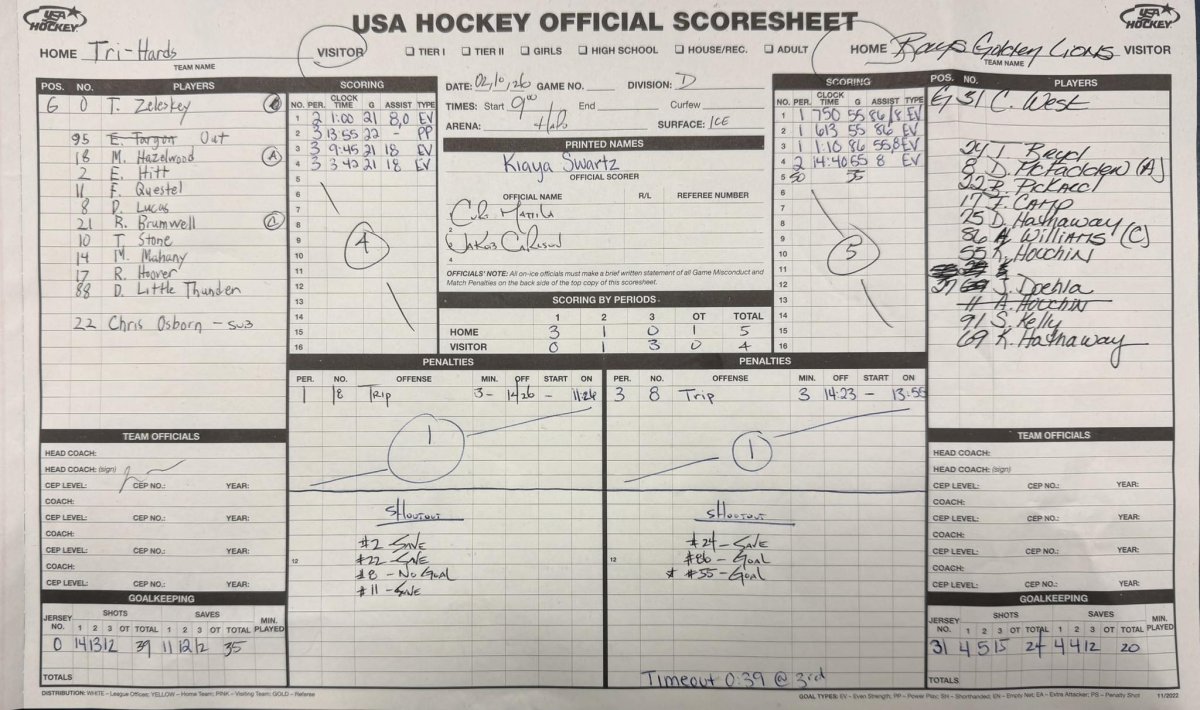 USA HOCKEY
USA HOCKEY OFFICIAL SCORESHEET
USA HOCKEY
HOME Tri-Hards VISITOR
TEAM NAME
☐ TIER I ☐ TIER II ☐ GIRLS ☐ HIGH SCHOOL ☐ HOUSE/REC. ☐ ADULT
HOME Rays Golden Lions VISITOR
TEAM NAME
POS. NO. PLAYERS
G 0 T. Zeleskey
95 E. Targon Out
18 M. Hazelwood (A)
2 E. Hitt
11 F. Questel
8 D. Lucas
21 R. Brumwell
10 T. Stone
14 M. Mahany
17 R. Hoover
88 D. Little Thunder
22 Chris Osborn - sub
SCORING
NO. PER. CLOCK TIME G ASSIST TYPE
1 2 1:00 21 8,0 EV
2 3 13:55 22 - PP
3 3 9:45 21 18 EV
4 3 3:42 21 18 EV
5
6
7
8
9
10
11
12
13
14
15
16
4
DATE: 02/10/26 GAME NO. DIVISION: D
TIMES: Start 9:00 End Curfew
ARENA: Halo SURFACE: ICE
PRINTED NAMES
Kiaya Swartz
OFFICIAL SCORER
OFFICIAL NAME R/L REFEREE NUMBER
2
4
OFFICIALS' NOTE: All on-ice officials must make a brief written statement of all Game Misconduct and
Match Penalties on the back side of the top copy of this scoresheet.
SCORING BY PERIODS
1 2 3 OT TOTAL
HOME 3 1 0 1 5
VISITOR 0 1 3 0 4
SCORING
NO. PER. CLOCK TIME G ASSIST TYPE
1 1 750 55 86/8 EV
2 1 613 55 86 EV
3 1 1:10 86 55,8 EV
4 2 14:40 55 8 EV
5 SO 55
6
7
8
9
10
11
12
13
14
15
16
5
POS. NO. PLAYERS
G 31 C. West
24 T. Boyd
8 D. McFadden (A)
22 B. Pickard
17 J. Camp
75 D. Hathaway
86 A. Williams (C)
55 K. Houchin
37 J. Doehla
11 A. Houchin
91 S. Kelly
69 K. Hathaway
PENALTIES
PER. NO. OFFENSE MIN. OFF START ON
1 18 Trip 3 - 14:26 - 11:26
1
PENALTIES
PER. NO. OFFENSE MIN. OFF START ON
3 8 Trip 3 14:23 - 13:55
1
SHOOTOUT
#2 - SAVE
#22 - SAVE
#8 - No GOAL
#11 - SAVE
12
SHOOTOUT
#24 - SAVE
#86 - GOAL
* #55 - GOAL
12
Timeout 0:39 @ 3rd
TEAM OFFICIALS
HEAD COACH:
HEAD COACH: (sign)
CEP LEVEL: CEP NO.: YEAR:
COACH:
CEP LEVEL: CEP NO.: YEAR:
COACH:
CEP LEVEL: CEP NO.: YEAR:
COACH:
CEP LEVEL: CEP NO.: YEAR:
GOALKEEPING
JERSEY NO. SHOTS SAVES MIN. PLAYED
1 2 3 OT TOTAL 1 2 3 OT TOTAL
0 14 13 12 39 11 12 12 35
TOTALS
TEAM OFFICIALS
HEAD COACH:
HEAD COACH: (sign)
CEP LEVEL: CEP NO.: YEAR:
COACH:
CEP LEVEL: CEP NO.: YEAR:
COACH:
CEP LEVEL: CEP NO.: YEAR:
COACH:
CEP LEVEL: CEP NO.: YEAR:
GOALKEEPING
JERSEY NO. SHOTS SAVES MIN. PLAYED
1 2 3 OT TOTAL 1 2 3 OT TOTAL
31 4 5 15 24 4 4 12 20
TOTALS
DISTRIBUTION: WHITE – League Offices; YELLOW – Home Team; PINK – Visiting Team; GOLD – Referee
GOAL TYPES: EV – Even Strength; PP – Power Play; SH – Shorthanded; EN – Empty Net; EA – Extra Attacker; PS – Penalty Shot 11/2022